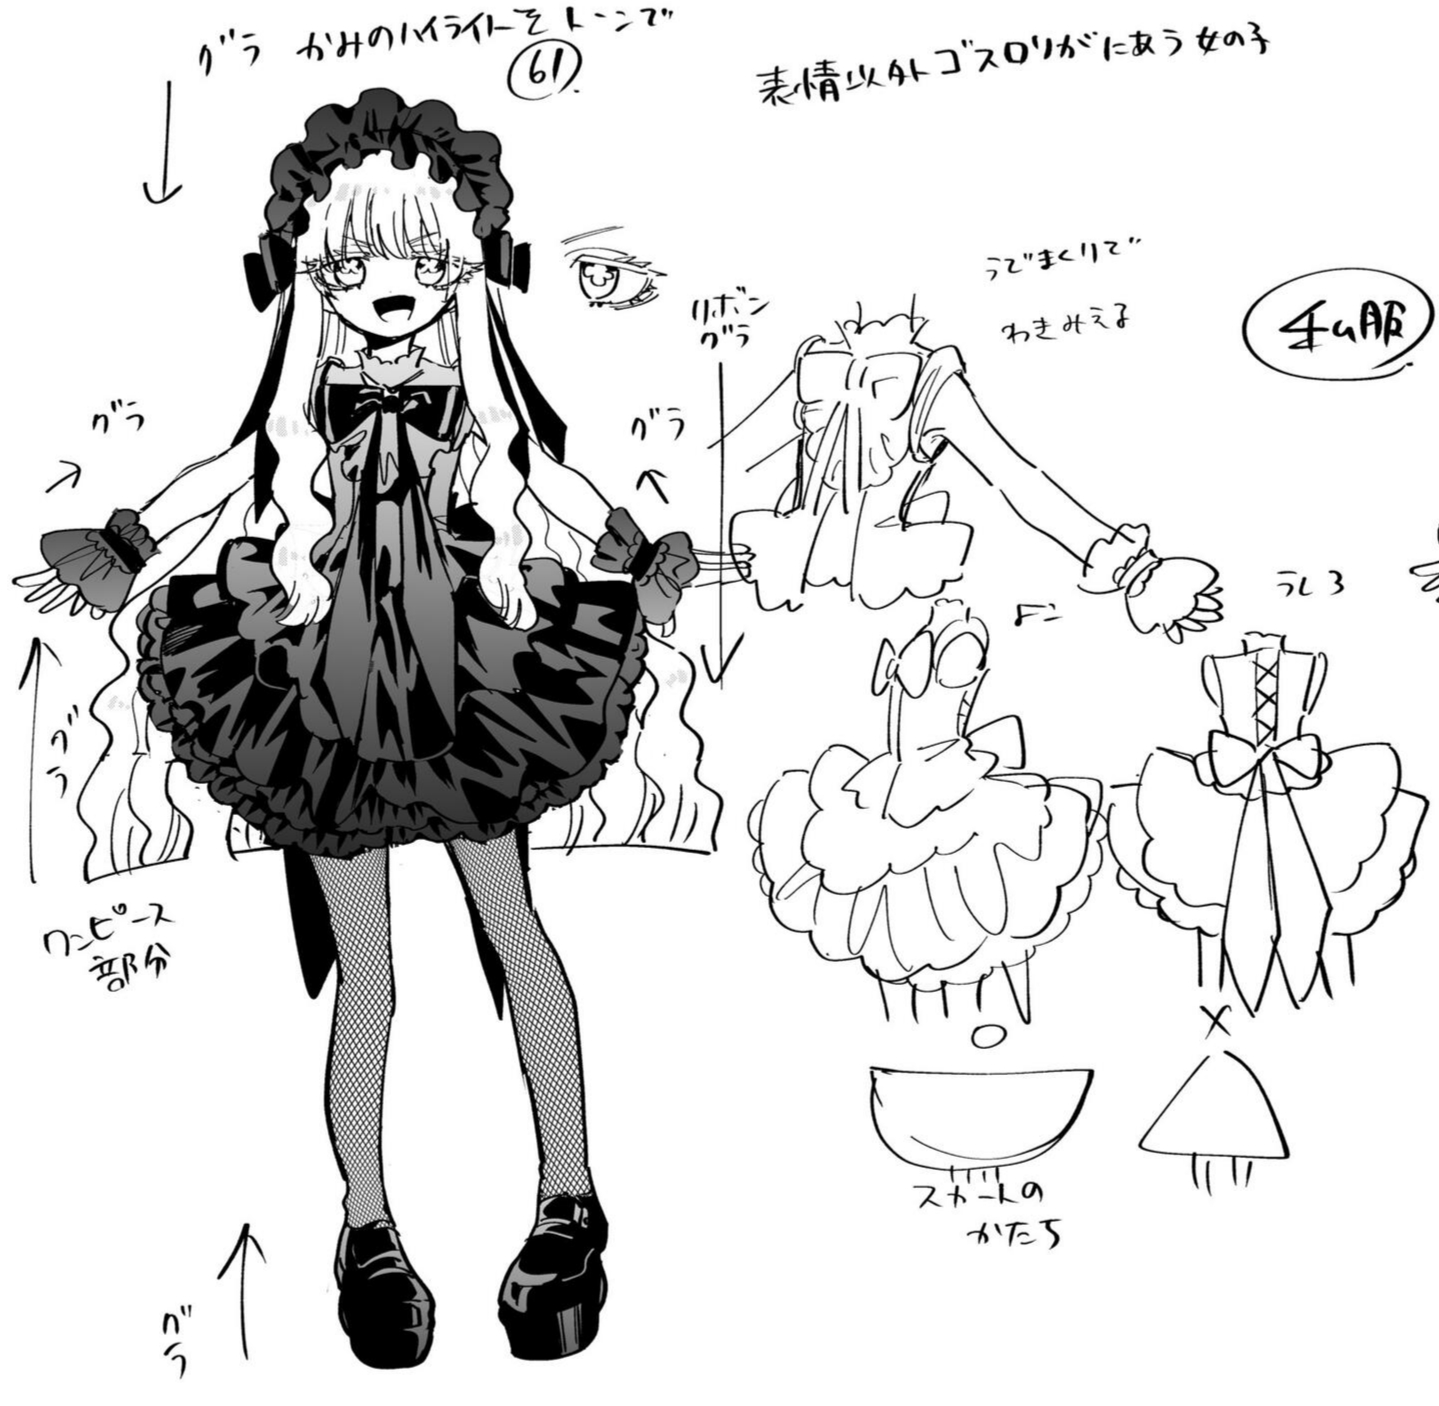 グラ かみのハイライトをトーンで
61
表情以外ゴスロリがにあう女の子
うでまくりで
わきみえる
私服
リボン
グラ
グラ
グラ
よこ
うしろ
グラ
ワンピース
部分
スカートの
かたち
グラ